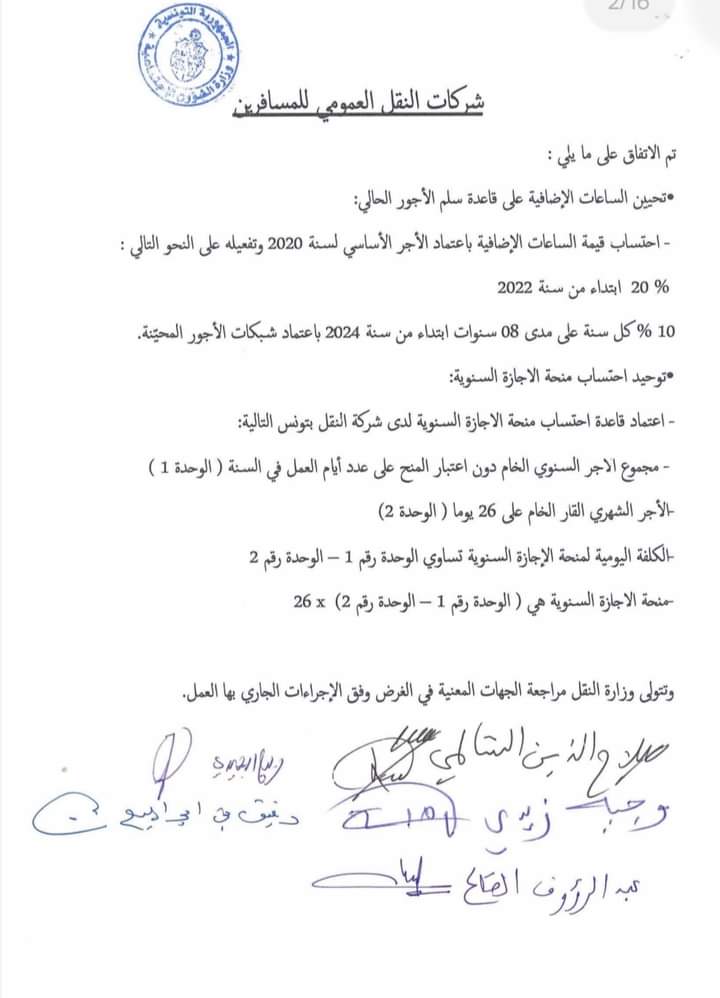 2/16
الجمهورية التونسية
شركات النقل العمومي للمسافرين
تم الاتفاق على ما يلي :
•تحيين الساعات الإضافية على قاعدة سلم الأجور الحالي:
- احتساب قيمة الساعات الإضافية باعتماد الأجر الأساسي لسنة 2020 وتفعيله على النحو التالي :
% 20 ابتداء من سنة 2022
10 % كل سنة على مدى 08 سنوات ابتداء من سنة 2024 باعتماد شبكات الأجور المحيّنة.
•توحيد احتساب منحة الاجازة السنوية:
- اعتماد قاعدة احتساب منحة الاجازة السنوية لدى شركة النقل بتونس التالية:
- مجموع الاجر السنوي الخام دون اعتبار المنح على عدد أيام العمل في السنة ( الوحدة 1 )
-الأجر الشهري القار الخام على 26 يوما ( الوحدة 2)
-الكلفة اليومية لمنحة الإجازة السنوية تساوي الوحدة رقم 1 – الوحدة رقم 2
-منحة الاجازة السنوية هي ( الوحدة رقم 1 – الوحدة رقم 2) x 26
وتتولى وزارة النقل مراجعة الجهات المعنية في الغرض وفق الإجراءات الجاري بها العمل.
صلاح الدين السالمي
وجيه زيدي
عبد الرؤوف الصالح